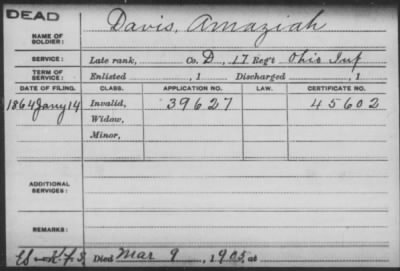 DEAD
NAME OF SOLDIER: Davis, Amaziah
SERVICE: Late rank, Co. D, 17 Reg't Ohio Inf
TERM OF SERVICE: Enlisted , 1 Discharged , 1
DATE OF FILING. CLASS. APPLICATION NO. LAW. CERTIFICATE NO.
1864 Jany 14 Invalid, 39627 45602
Widow,
Minor,
ADDITIONAL SERVICES:
REMARKS:
Died Mar 9, 1905, at